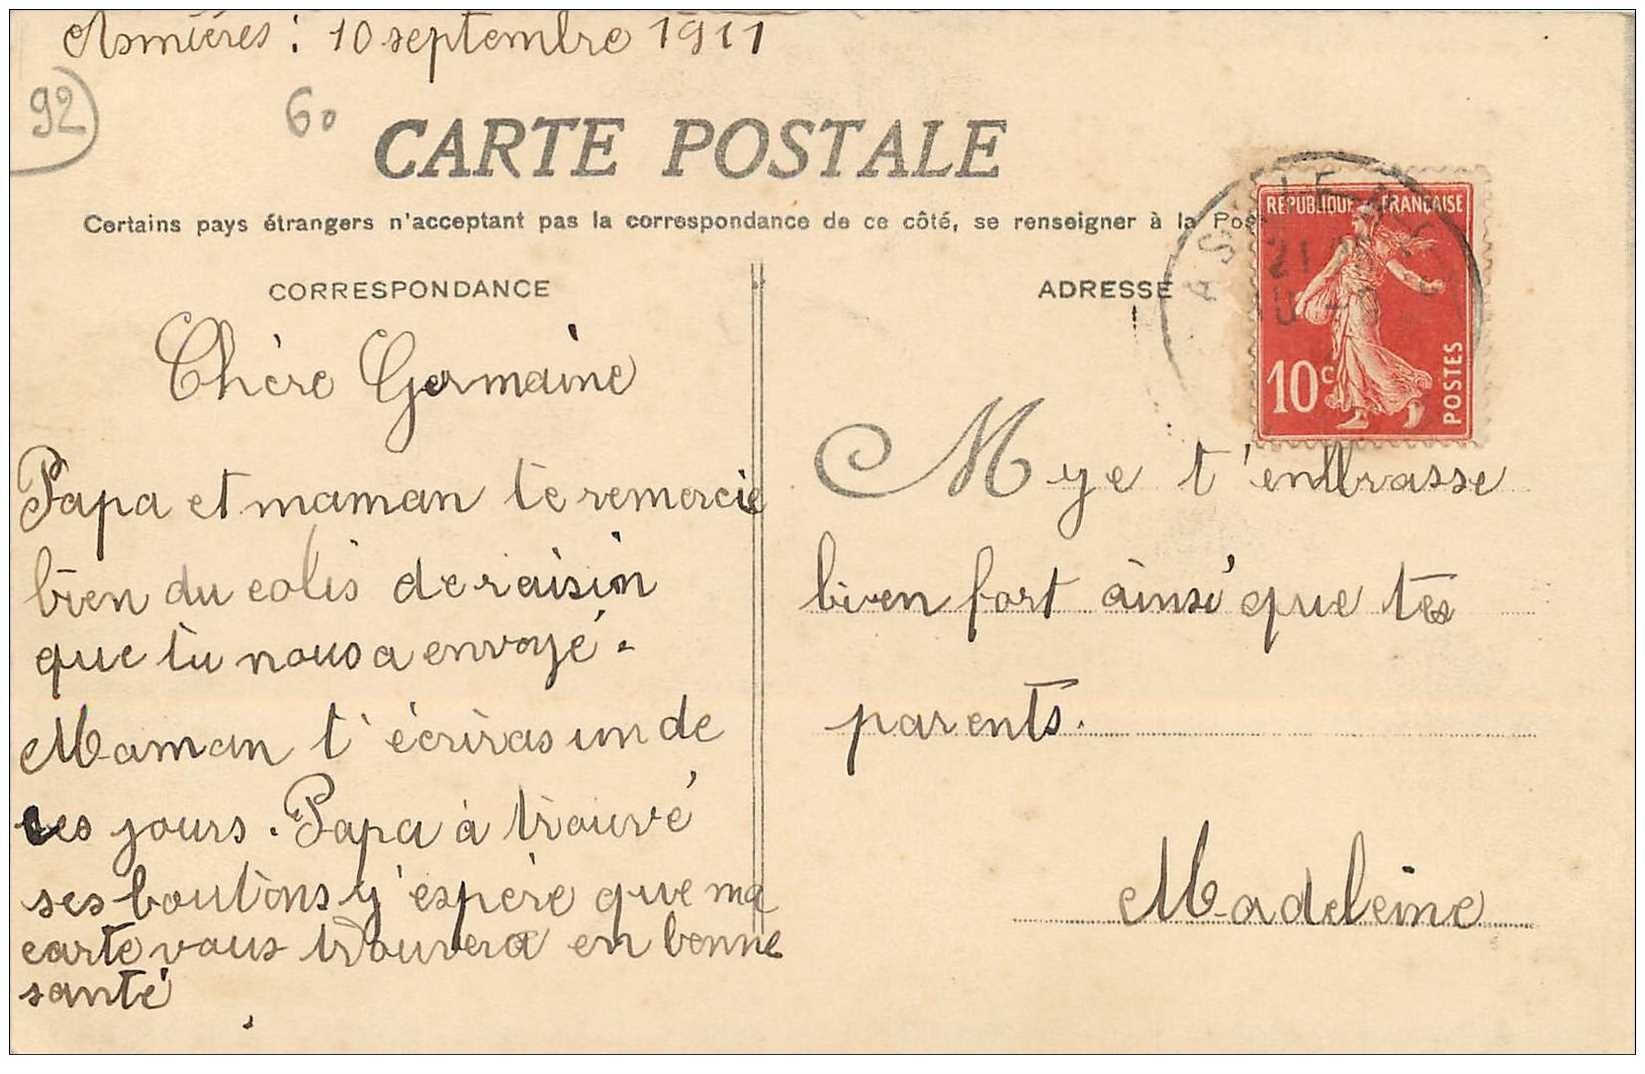 Asnières : 10 septembre 1911
92
60
CARTE POSTALE
Certains pays étrangers n'acceptant pas la correspondance de ce côté, se renseigner à la Pos
CORRESPONDANCE
ADRESSE
RÉPUBLIQUE FRANÇAISE
10c POSTES
Chère Germaine
Papa et maman te remercie
bien du colis de raisin
que tu nous a envoyé.
Maman t'écriras un de
ces jours. Papa à trouvé
ses boutons y'espère que ma
carte vous trouvera en bonne
santé
M ye t'embrasse
bien fort ainsi que tes
parents.
Madeleine